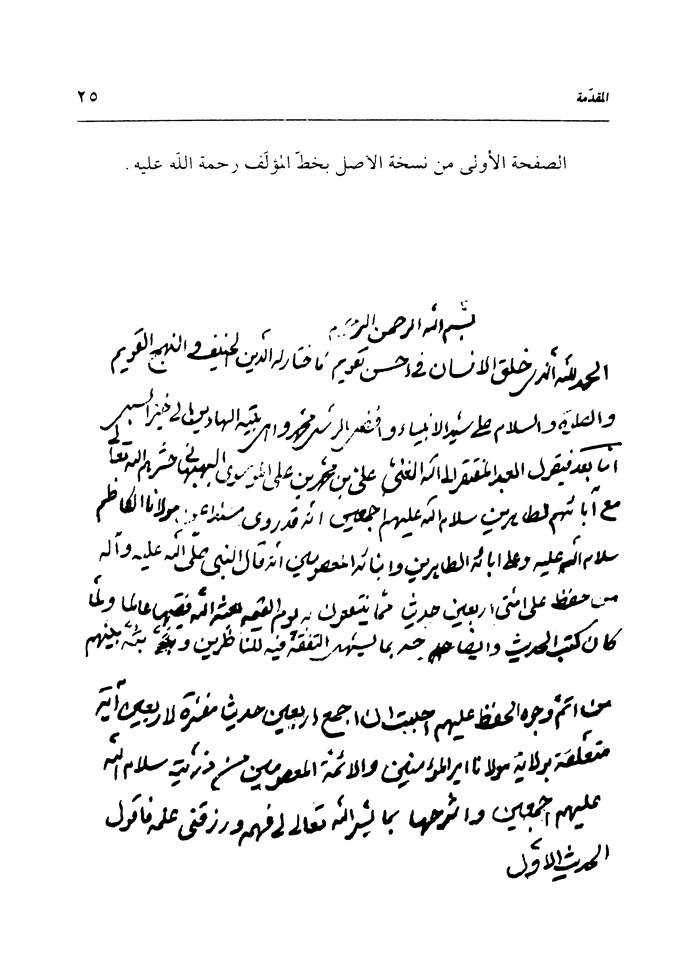 المقدّمة ٢٥
الصفحة الأولى من نسخة الاصل بخطّ المؤلّف رحمة اللّه عليه .
بسم الله الرحمن الرحيم
الحمد لله الذى خلق الانسان فى احسن تقويم فاختار له الدين الحنيف و النهج القويم
والصلوة والسلام على سيد الانبياء و افضل الرسل محمد و اهل بيته الهادين الى خير السبل
اما بعد فيقول العبد المفتقر الى الله الغنى على بن محمد بن على الموسوى البهبهانى حشرهم الله تعالى
مع آبائهم الطاهرين سلام الله عليهم اجمعين انه قد روى مسندا عن مولانا الكاظم
سلام الله عليه وعلى ابائه الطاهرين وابنائه المعصومين انه قال النبى صلى الله عليه وآله
من حفظ على امتى اربعين حديثا مما ينتفعون به يوم القيمة بعثه الله فقيها عالما ولما
كان كتب الحديث وايضاحه بما يسهل التفقه فيه للناظرين و بثه بينهم
من اتم وجوه الحفظ عليهم احببت ان اجمع اربعين حديثا مفسرة لاربعين آية
متعلقة بولاية مولانا امير المؤمنين والائمة المعصومين من ذريته سلام الله
عليهم اجمعين واشرحها بما يسر الله تعالى لى فهمه ورزقنى علمه فاقول
الحديث الاول